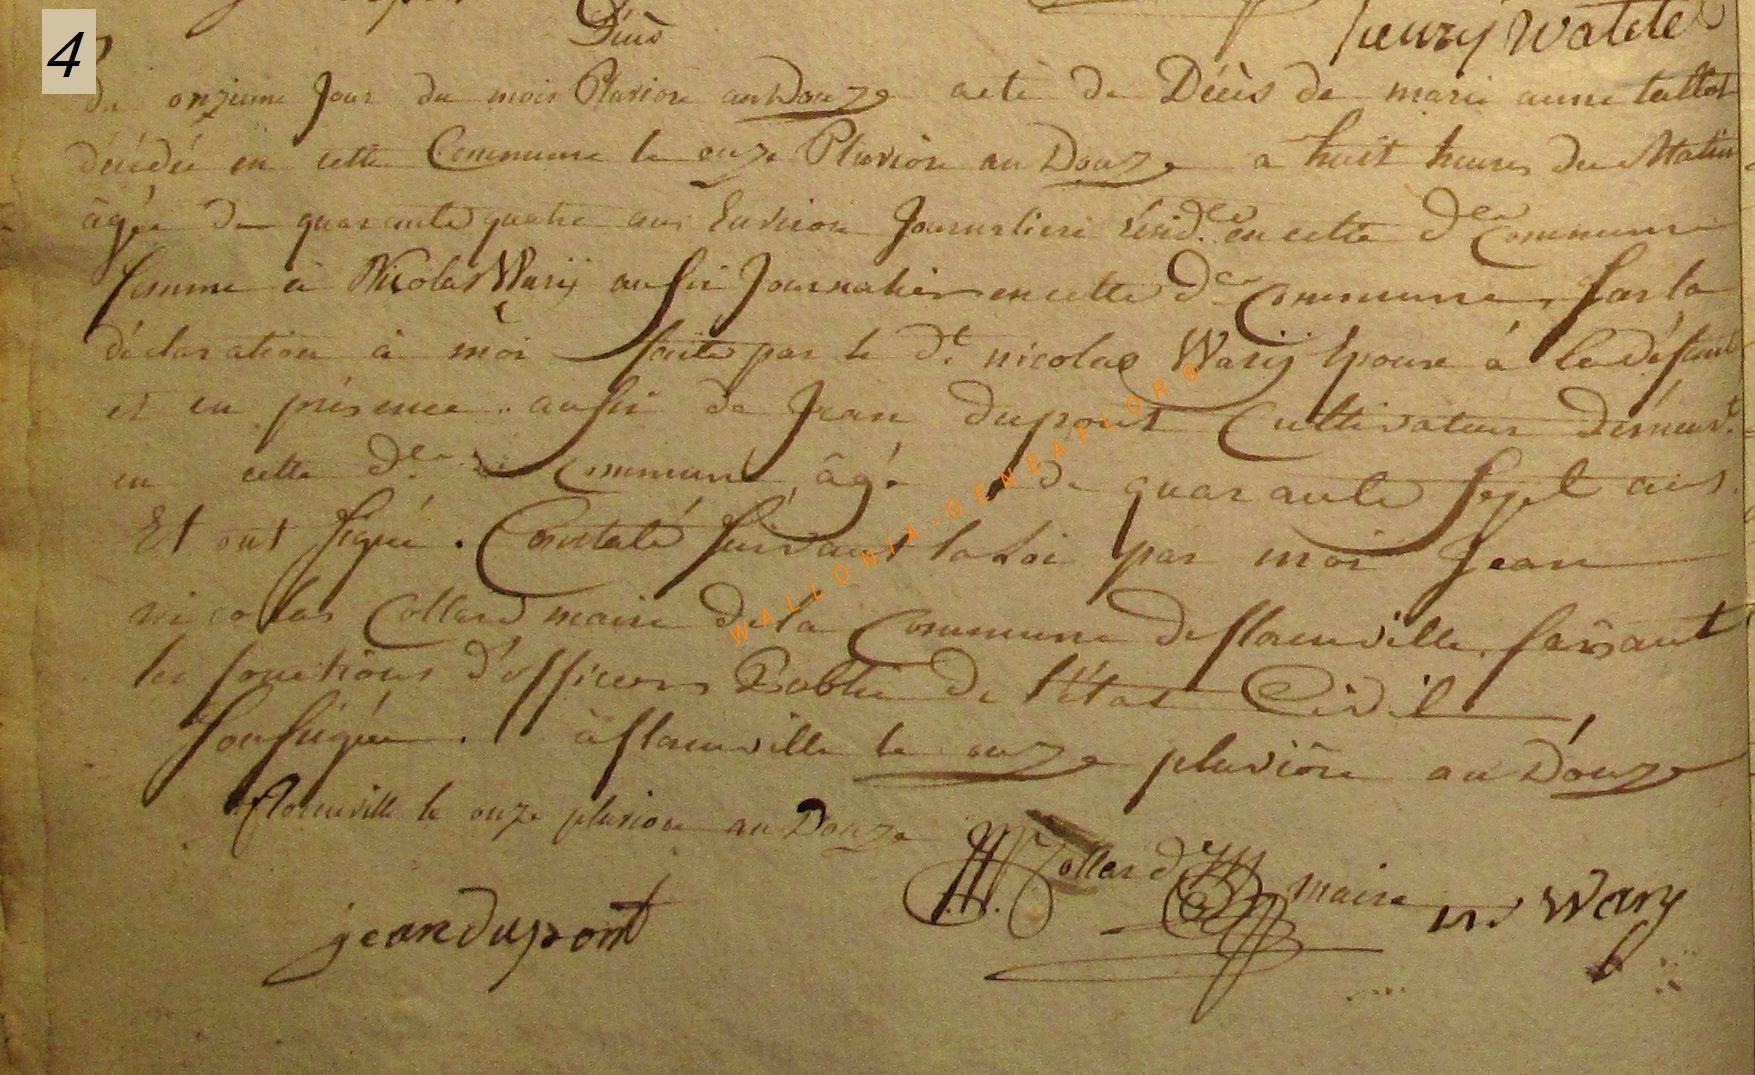 4
henry Watele
Décès
Du onzieme Jour du mois Pluviose an Douze acte de Décès de marie anne tallot
décédée en cette Commune le onze Pluviôse an Douze a huit heures du Matin
âgée de quarante quatre ans Environ Journaliere Résid.te en cette d.te Commune
femme à Nicolas Warÿ aussi Journalier en cette d.te Commune, sur la
déclaration à moi faite par le d.t nicolas Warÿ Epoux à la défunte
et en présence aussi de Jean dupont Cultivateur demeur.t
en cette d.te Commune âgé de quarante sept ans.
Et ont signé. Constaté suivant la Loi par moi Jean
nicolas Collard maire de la Commune de florenville, faisant
les fonctions d'officier Public de l'état Civil
soussigné. à florenville le onze pluviôse an Douze
florenville le onze pluviose an Douze
Collard maire
n Wary
jean dupont
WALLONIA-GENEAFLORG